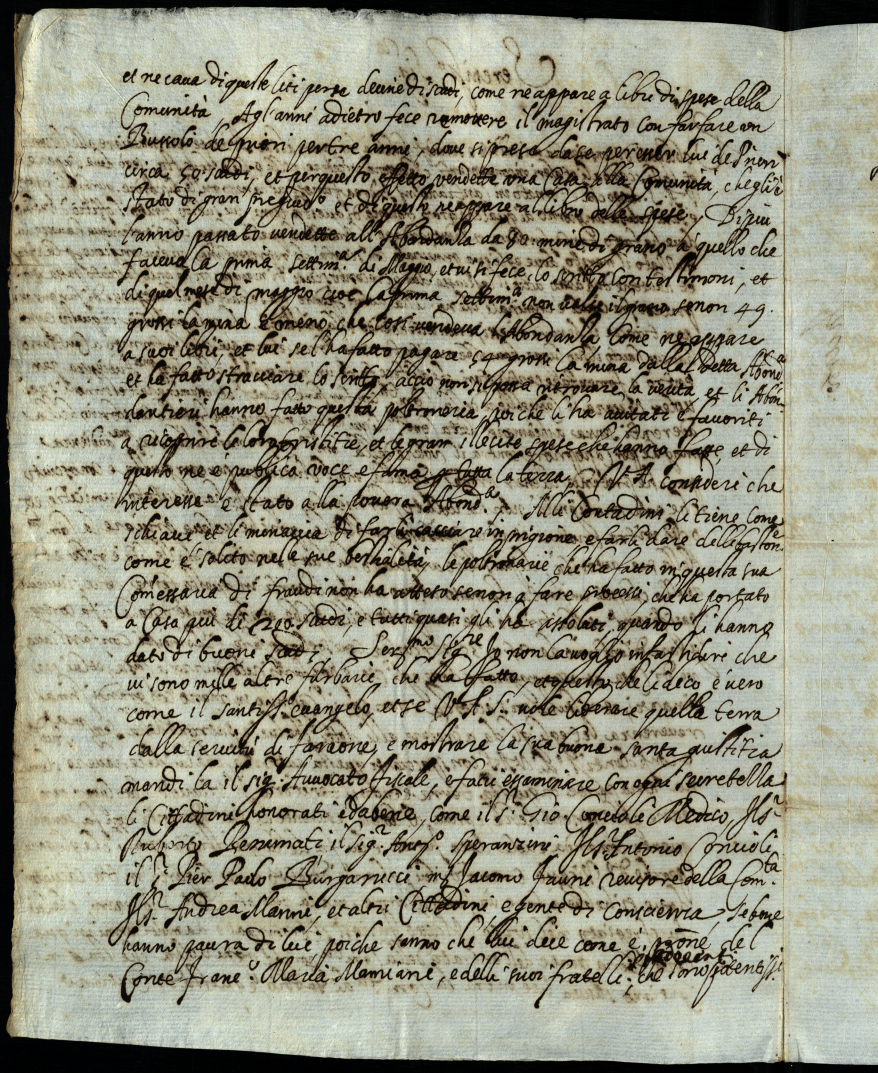 et ne cava di queste liti per se decine di scudi, come ne appare a libri di spese della
Comunità, Agl'anni adietro fece rimovere il magistrato con far fare un
Bussolo de priori per tre anni, dove si presa da se per esser lui de Priori
circa 50 scudi, et per questo effetto vendette una Casa alla Comunità, che gli è
stato di gran pregiud.o et di questo ne appare al libro delle spese, Di più
l'anno passato vendette all'Abondanza da 80 mine di grano a quello che
faceva la prima settim.a di Maggio, et vi si fece lo scritto con testimoni, et
di quel mese di maggio cioè la prima settim.a non valse il grano se non 49.
grossi la mina e meno, che così vendeva l'Abondanza come ne appare
a suoi libri, et lui se l'ha fatto pagare 54 grossi la mina dalla detta Abond.a
et ha fatto stracciare lo scritto, acciò non si possa ritrovare la verità, et li Abon
dantieri hanno fatto questa poltroneria, poiché li ha aiutati e favoriti
a ricoprire le loro tristitie, et le gran illecite spese che hanno fatte, et di
questo ne è publica voce e fama p tutta la terra, V. A. consideri che
interesse è stato alla povera Abond.a, Alli Contadini li tiene come
schiavi et li minaccia di farli cacciare in prigione e farli dare delle baston.e
come è solito nelle sue bestialetà, le poltronarie che ha fatto in questa sua
Comessaria di fraudi non ha atteso se non a fare processi, che ha portato
a Casa più di 200 scudi, e tutti quasi gli ha assoluti quando li hanno
dato di buoni scudi, Ser.mo Sig.re Io non la voglio infastidire che
vi sono mille altre furbarie, che ha fatto, et questo che li dico è vero
come il santiss.o evangelo, et se V. A. S. vuole liberare quella terra
dalla servitù di faraone, e mostrare la sua buona santa giustitia
mandi la il sig.r Avvocato fiscale, e faci essaminare con ogni secretezza
li Cittadini honorati e da bene, come il s.r Gio Medico, Il s.r
Ruberto Benumati il Sig.r Ant.o speranzini Il s.r Antonio
il s.r Pier Paolo Burgarucci m.r Jacomo revisore della Com.ta
Il s.r Andrea Manni, et altri Cittadini e gente di Conscienza, se bene
hanno paura di lui poiché sanno che lui dice come è p.rone del
Conte Franc.o Maria Mamiani, e delli suoi fratelli, che sono potentiss.i